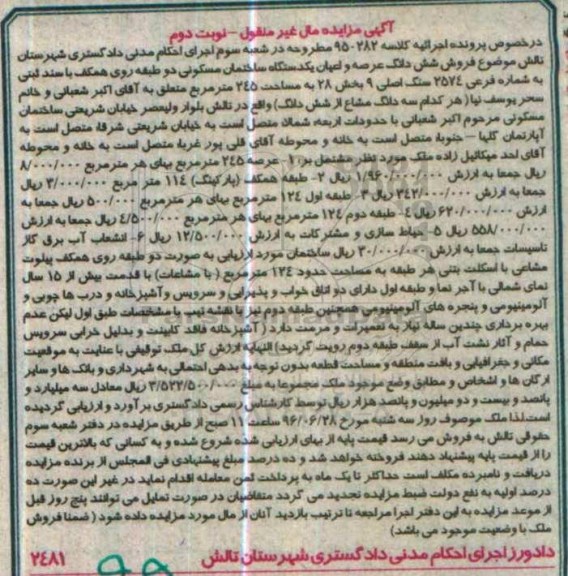 آگهی مزایده مال غیر منقول – نوبت دوم
درخصوص پرونده اجرائیه کلاسه ۲۸۲-۹۵ مطروحه در شعبه سوم اجرای احکام مدنی دادگستری شهرستان
تالش موضوع فروش شش دانگ عرصه و اعیان یکدستگاه ساختمان مسکونی دو طبقه روی همکف با سند ثبتی
به شماره فرعی ۲۵۷٤ سنگ اصلی ۹ بخش ۲۸ به مساحت ۲٤۵ مترمربع متعلق به آقای اکبر شعبانی و خانم
سحر یوسف نیا ( هر کدام سه دانگ مشاع از شش دانگ) واقع در تالش بلوار ولیعصر خیابان شریعتی ساختمان
مسکونی مرحوم اکبر شعبانی با حدودات اربعه، شمالا: متصل است به خیابان شریعتی شرقا: متصل است به
آپارتمان گلها – جنوبا: متصل است به خانه و محوطه آقای قلی پور غربا: متصل است به خانه و محوطه
آقای احد میکائیل زاده ملک مورد نظر مشتمل بر: ۱- عرصه ۲٤۵ مترمربع بهای هر مترمربع ۸/۰۰۰/۰۰۰
ریال جمعا به ارزش ۱/۹۶۰/۰۰۰/۰۰۰ ریال ۲- طبقه همکف (پارکینگ) ۱۱٤ متر مربع ۳/۰۰۰/۰۰۰ ریال
جمعا به ارزش ۳٤۲/۰۰۰/۰۰۰ ریال ۳- طبقه اول ۱۲٤ مترمربع بهای هر مترمربع ۵۰۰/۰۰۰ ریال جمعا به
ارزش ۶۲۰/۰۰۰/۰۰۰ ریال ٤- طبقه دوم ۱۲٤ مترمربع بهای هر مترمربع ٤/۵۰۰/۰۰۰ ریال جمعا به ارزش
۵۵۸/۰۰۰/۰۰۰ ریال ۵- حیاط سازی و مشترکات به ارزش ۱۲/۵۰۰/۰۰۰ ریال ۶- انشعاب آب برق گاز
تاسیسات جمعا به ارزش ۳۰/۰۰۰/۰۰۰ ریال ساختمان مورد ارزیابی به صورت دو طبقه روی همکف پیلوت
مشاعی با اسکلت بتنی هر طبقه به مساحت حدود ۱۲٤ مترمربع ( با مشاعات) با قدمت بیش از ۱۵ سال
نمای شمالی با آجر نما و طبقه اول دارای دو اتاق خواب و پذیرایی و سرویس و آشپزخانه و درب ها چوبی و
آلومینیومی و پنجره های آلومینیومی همچنین طبقه دوم نیز با نقشه تیپ با مشخصات طبق اول لیکن عدم
بهره برداری چندین ساله نیاز به تعمیرات و مرمت دارد ( آشپزخانه فاقد کابینت و بدلیل خرابی سرویس
حمام و آثار نشت آب از سقف طبقه دوم رویت گردید) النهایه ارزش کل ملک توقیفی با عنایت به موقعیت
مکانی و جغرافیایی و بافت منطقه و مساحت قطعه بدون توجه به بدهی احتمالی به شهرداری و بانک ها و سایر
ارگان ها و اشخاص و مطابق وضع موجود ملک مجموعا به مبلغ ۳/۵۲۲/۵۰۰/۰۰۰ ریال معادل سه میلیارد و
پانصد و بیست و دو میلیون و پانصد هزار ریال توسط کارشناس رسمی دادگستری برآورد و ارزیابی گردیده
است.لذا ملک موصوف روز سه شنبه مورخ ۹۶/۰۶/۲۸ ساعت ۱۱ صبح از طریق مزایده در دفتر شعبه سوم
حقوقی تالش به فروش می رسد قیمت پایه از بهای ارزیابی شده شروع شده و به کسانی که بالاترین قیمت
را از قیمت پایه پیشنهاد دهند فروخته خواهد شد و ده درصد مبلغ پیشنهادی فی المجلس از برنده مزایده
دریافت و نامبرده مکلف است حداکثر تا یک ماه به پرداخت ثمن معامله اقدام نماید در غیر این صورت ده
درصد اولیه به نفع دولت ضبط مزایده تجدید می گردد متقاضیان در صورت تمایل می توانند پنج روز قبل
از موعد مزایده به این دفتر اجرا مراجعه تا ترتیب بازدید آنان از مال مورد مزایده داده شود ( ضمنا فروش
ملک با وضعیت موجود می باشد)
دادورز اجرای احکام مدنی دادگستری شهرستان تالش ۲٤۸۱